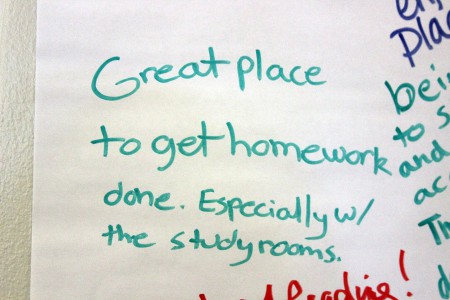 Great place
to get homework
done. Especially w/
the study rooms.
being
to s
and
ac